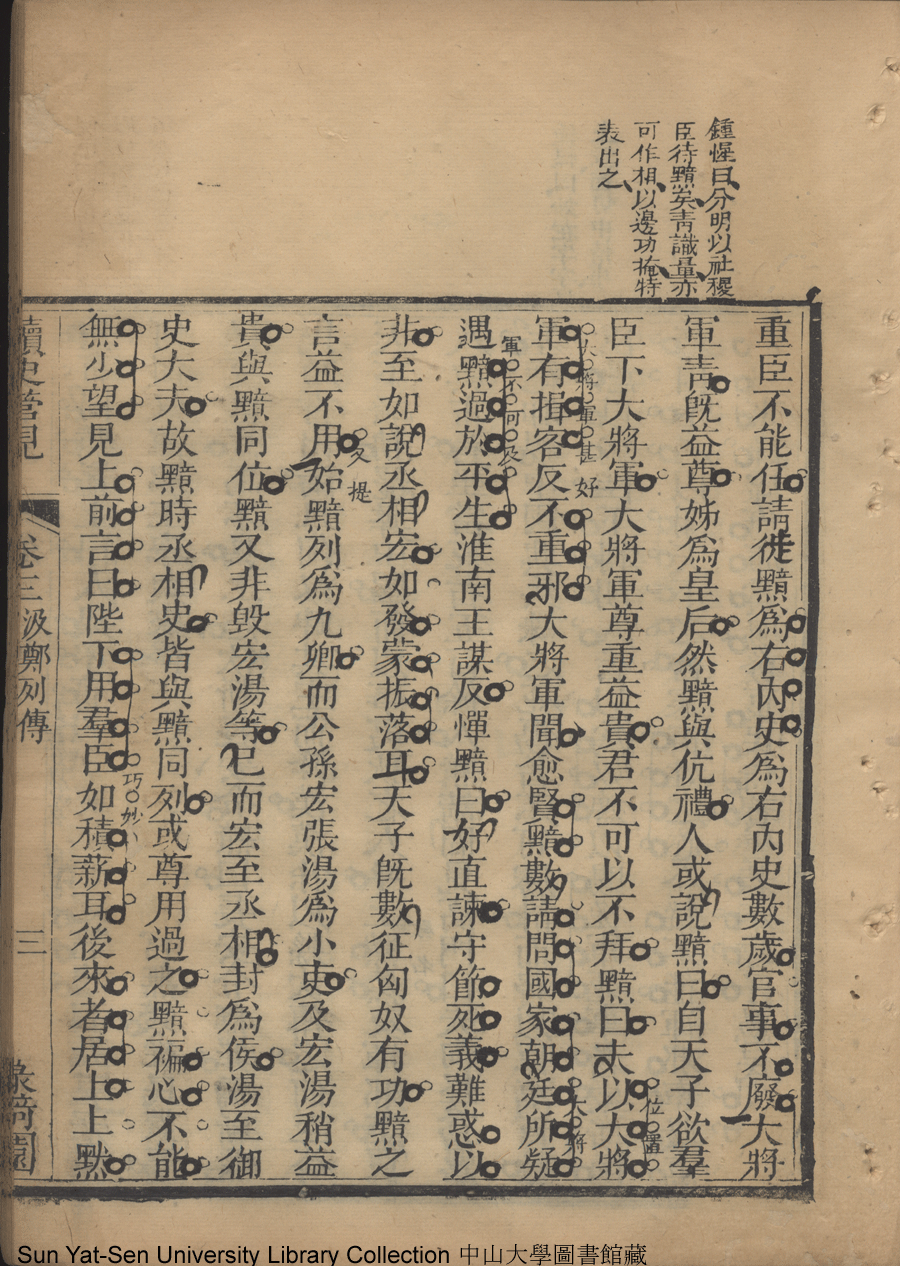 鍾惺曰分明以社稷
臣待黯矣靑識量亦
可作相以邊功掩特
表出之
重臣不能任請徙黯爲右內史爲右內史數歲官事不廢大將
軍靑旣益尊姊爲皇后然黯與伉禮人或說黯曰自天子欲羣
臣下大將軍大將軍尊重益貴君不可以不拜黯曰夫以大將
位置
軍有揖客反不重邪大將軍聞愈賢黯數請問國家朝廷所疑
大將軍甚好
大將
軍不可及
遇黯過於平生淮南王謀反憚黯曰好直諫守節死義難惑以
非至如說丞相宏如發蒙振落耳天子旣數征匈奴有功黯之
言益不用始黯列爲九卿而公孫宏張湯爲小吏及宏湯稍益
又提
貴與黯同位黯又非毀宏湯等已而宏至丞相封爲侯湯至御
史大夫故黯時丞相史皆與黯同列或尊用過之黯褊心不能
無少望見上前言曰陛下用羣臣如積薪耳後來者居上上默
巧妙
讀史管見
卷三汲鄭列傳
三
Sun Yat-Sen University Library Collection 中山大學圖書館藏